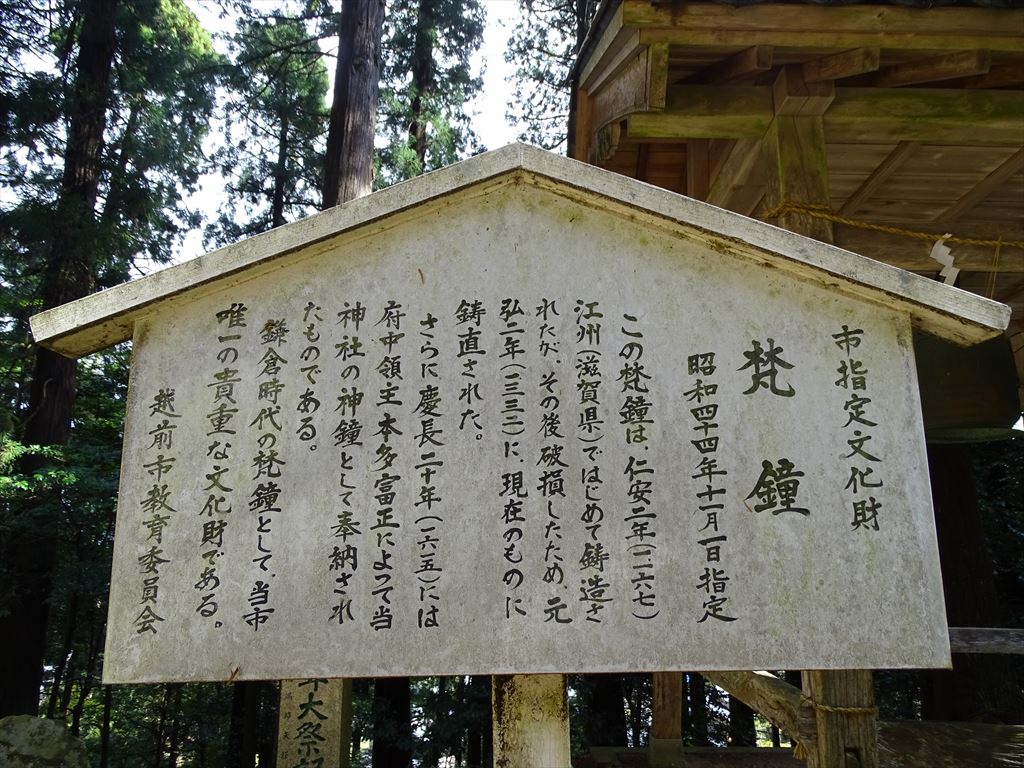 市指定文化財
梵鐘
昭和四十四年十一月一日指定
この梵鐘は、仁安二年(一一六七)
江州(滋賀県)ではじめて鋳造さ
れたが、その後破損したため、元
弘二年(一三三二)に、現在のものに
鋳直された。
さらに慶長二十年(一六一五)には
府中領主本多富正によって当
神社の神鐘として奉納され
たものである。
鎌倉時代の梵鐘として、当市
唯一の貴重な文化財である。
越前市教育委員会
大祭